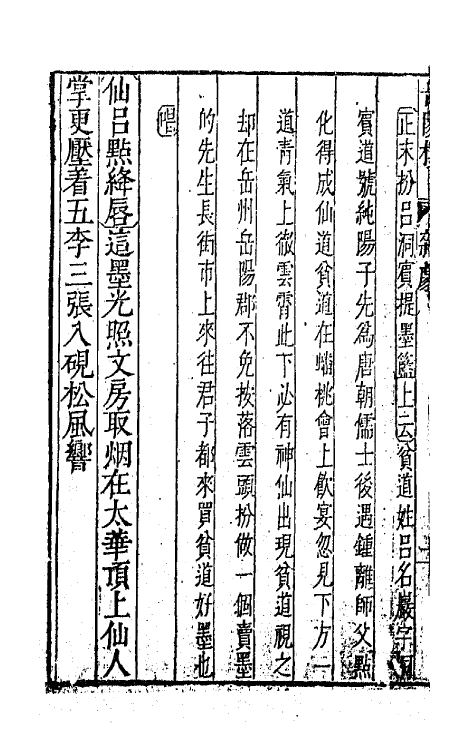 岳陽樓 雜劇
正末扮呂洞賓提墨籃上云貧道姓呂名巖字洞
賓道號純陽子先為唐朝儒士後遇鍾離師父點
化得成仙道貧道在蟠桃會上飲宴忽見下方一
道青氣上徹雲霄此下必有神仙出現貧道視之
却在岳州岳陽郡不免按落雲頭扮做一個賣墨
的先生長街市上來往君子都來買貧道好墨也
唱
仙呂點絳唇這墨光照文房取烟在太華頂上仙人
掌更壓着五李三張入硯松風響